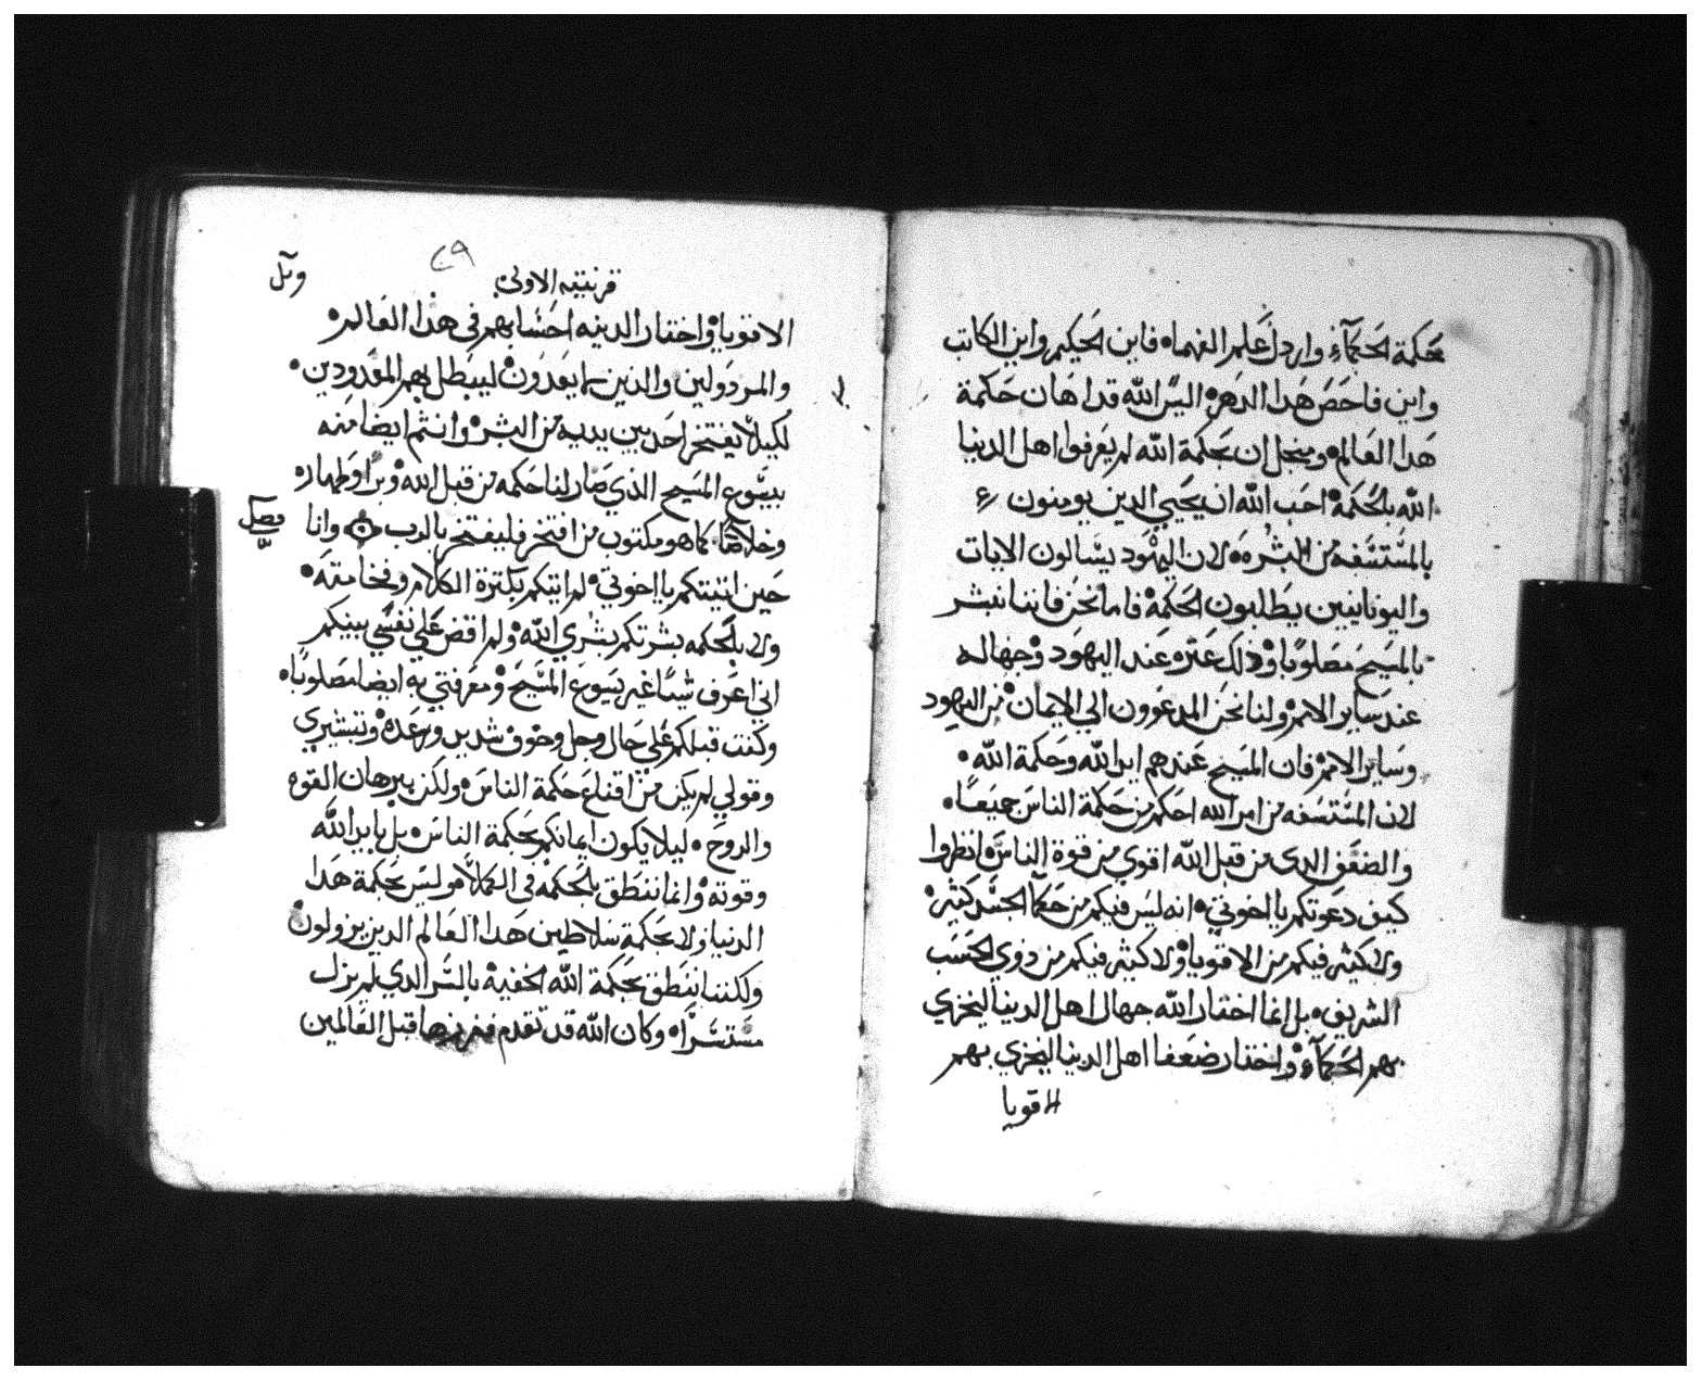 حكمة الحكمآء واردل علم الفهماه فاين الحكيم واين الكاتب
واين فاحص هدا الدهره اليس الله قد اهان حكمة
هدا العالم ومنجل ان بحكمة الله لم يعرفوا اهل الدنيا
الله بالحكمة احب الله ان يحيي الدين يومنون
بالمستسفه من البشره لان اليهود يسالون الايات
واليونانيين يطلبون الحكمة فاما نحن فاننا نبشر
بالمسيح مصلوبًا وذلك عتره عند اليهود وجهاله
عند ساير الامم ولنا نحن المدعوون الي الايمان من اليهود
وساير الامم فان المسيح عندهم ايد الله وحكمة الله
لان المستسفه من امر الله احكم من حكمة الناس جميعًا
والضعف الدي من قبل الله اقوي من قوة الناس فانظروا
كيف دعوتكم يا اخوتي انه ليس فيكم من حكما الجسد كثير
ولا كثير فيكم من الاقويا ولا كثير فيكم من دوي الحسب
الشريف بل انما اختار الله جهال اهل الدنيا ليخزي
بهم الحكمآء واختار ضعفا اهل الدنيا ليخزي بهم
الاقويا
٢٩
قرنتيه الاولي
الاقويا واختار الدنيه احسابهم في هذا العالم
والمردولين والذين لا يعدون ليبطل بهم المعدودين
لكيلا يفتخر احد بين يديه من البشر وانتم ايضا منه
بيسوع المسيح الذي صار لنا حكمه من قبل الله وبرًا وطهاره
وخلاصًا كما هو مكتوب من افتخر فليفتخر بالرب وانا
فصل
حين اتيتكم يا اخوتي لم اتيكم بكترة الكلام وفخامته
ولا بالحكمه بشرتكم بشري الله ولم اقض علي نفسي بينكم
اني اعرف شيًا غير يسوع المسيح ومعرفتي به ايضا مصلوبًا
وكنت قبلكم علي حال وجل وخوف شديد ورعده وتبشيري
وقولي لم يكن من اقناع حكمة الناس ولكن ببرهان القوه
والروح ليلا يكون ايمانكم بحكمة الناس بل بايد الله
وقوته وانما ننطق بالحكمه في الكملا وليس بحكمة هدا
الدنيا ولا بحكمة سلاطين هدا العالم الدين يزولون
ولكننا ننطق بحكمة الله الخفية بالسر الدي لم يزل
مستترًا وكان الله قد تقدم ففرزها قبل العالمين